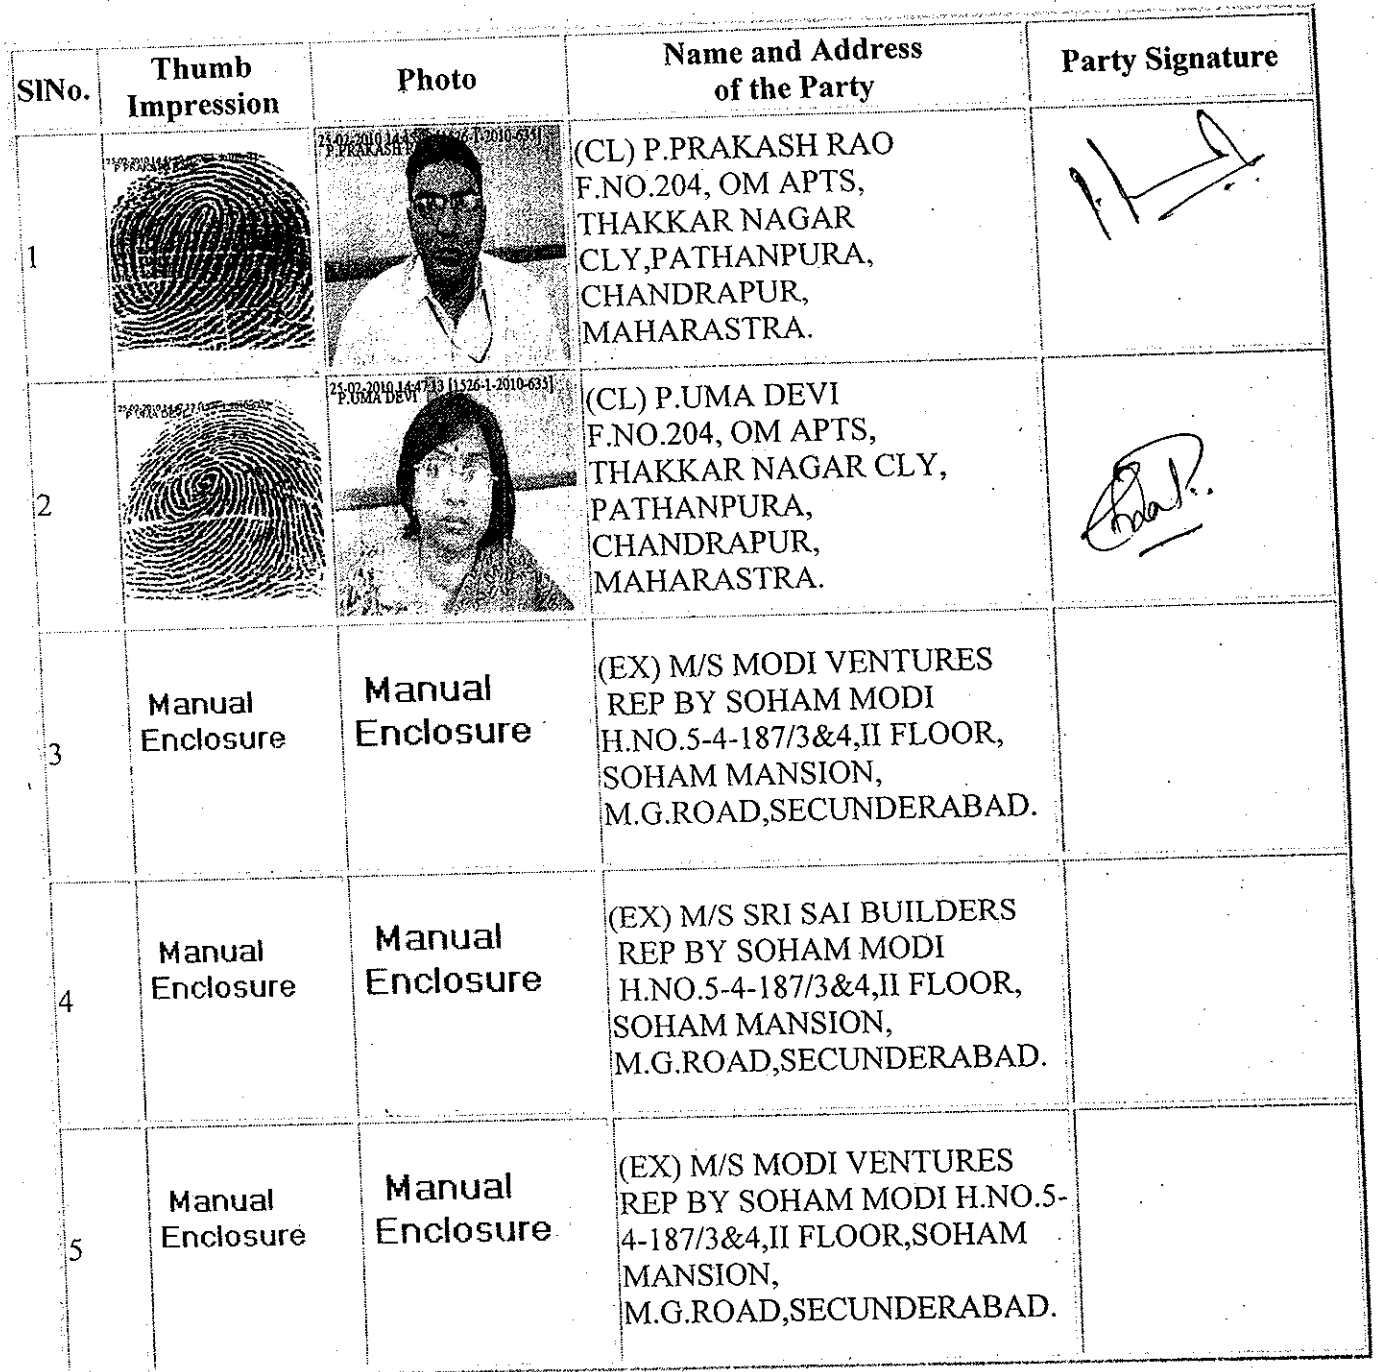 SlNo.
Thumb
Impression
Photo
Name and Address
of the Party
Party Signature
1
P.PRAKASH
25-02-2010
(CL) P.PRAKASH RAO
F.NO.204, OM APTS,
THAKKAR NAGAR
CLY,PATHANPURA,
CHANDRAPUR,
MAHARASTRA.
2
25-02-2010 14:47:13 [1526-1-2010-635]
P.UMA DEVI
(CL) P.UMA DEVI
F.NO.204, OM APTS,
THAKKAR NAGAR CLY,
PATHANPURA,
CHANDRAPUR,
MAHARASTRA.
3
Manual
Enclosure
Manual
Enclosure
(EX) M/S MODI VENTURES
REP BY SOHAM MODI
H.NO.5-4-187/3&4,II FLOOR,
SOHAM MANSION,
M.G.ROAD,SECUNDERABAD.
4
Manual
Enclosure
Manual
Enclosure
(EX) M/S SRI SAI BUILDERS
REP BY SOHAM MODI
H.NO.5-4-187/3&4,II FLOOR,
SOHAM MANSION,
M.G.ROAD,SECUNDERABAD.
5
Manual
Enclosure
Manual
Enclosure
(EX) M/S MODI VENTURES
REP BY SOHAM MODI H.NO.5-
4-187/3&4,II FLOOR,SOHAM
MANSION,
M.G.ROAD,SECUNDERABAD.